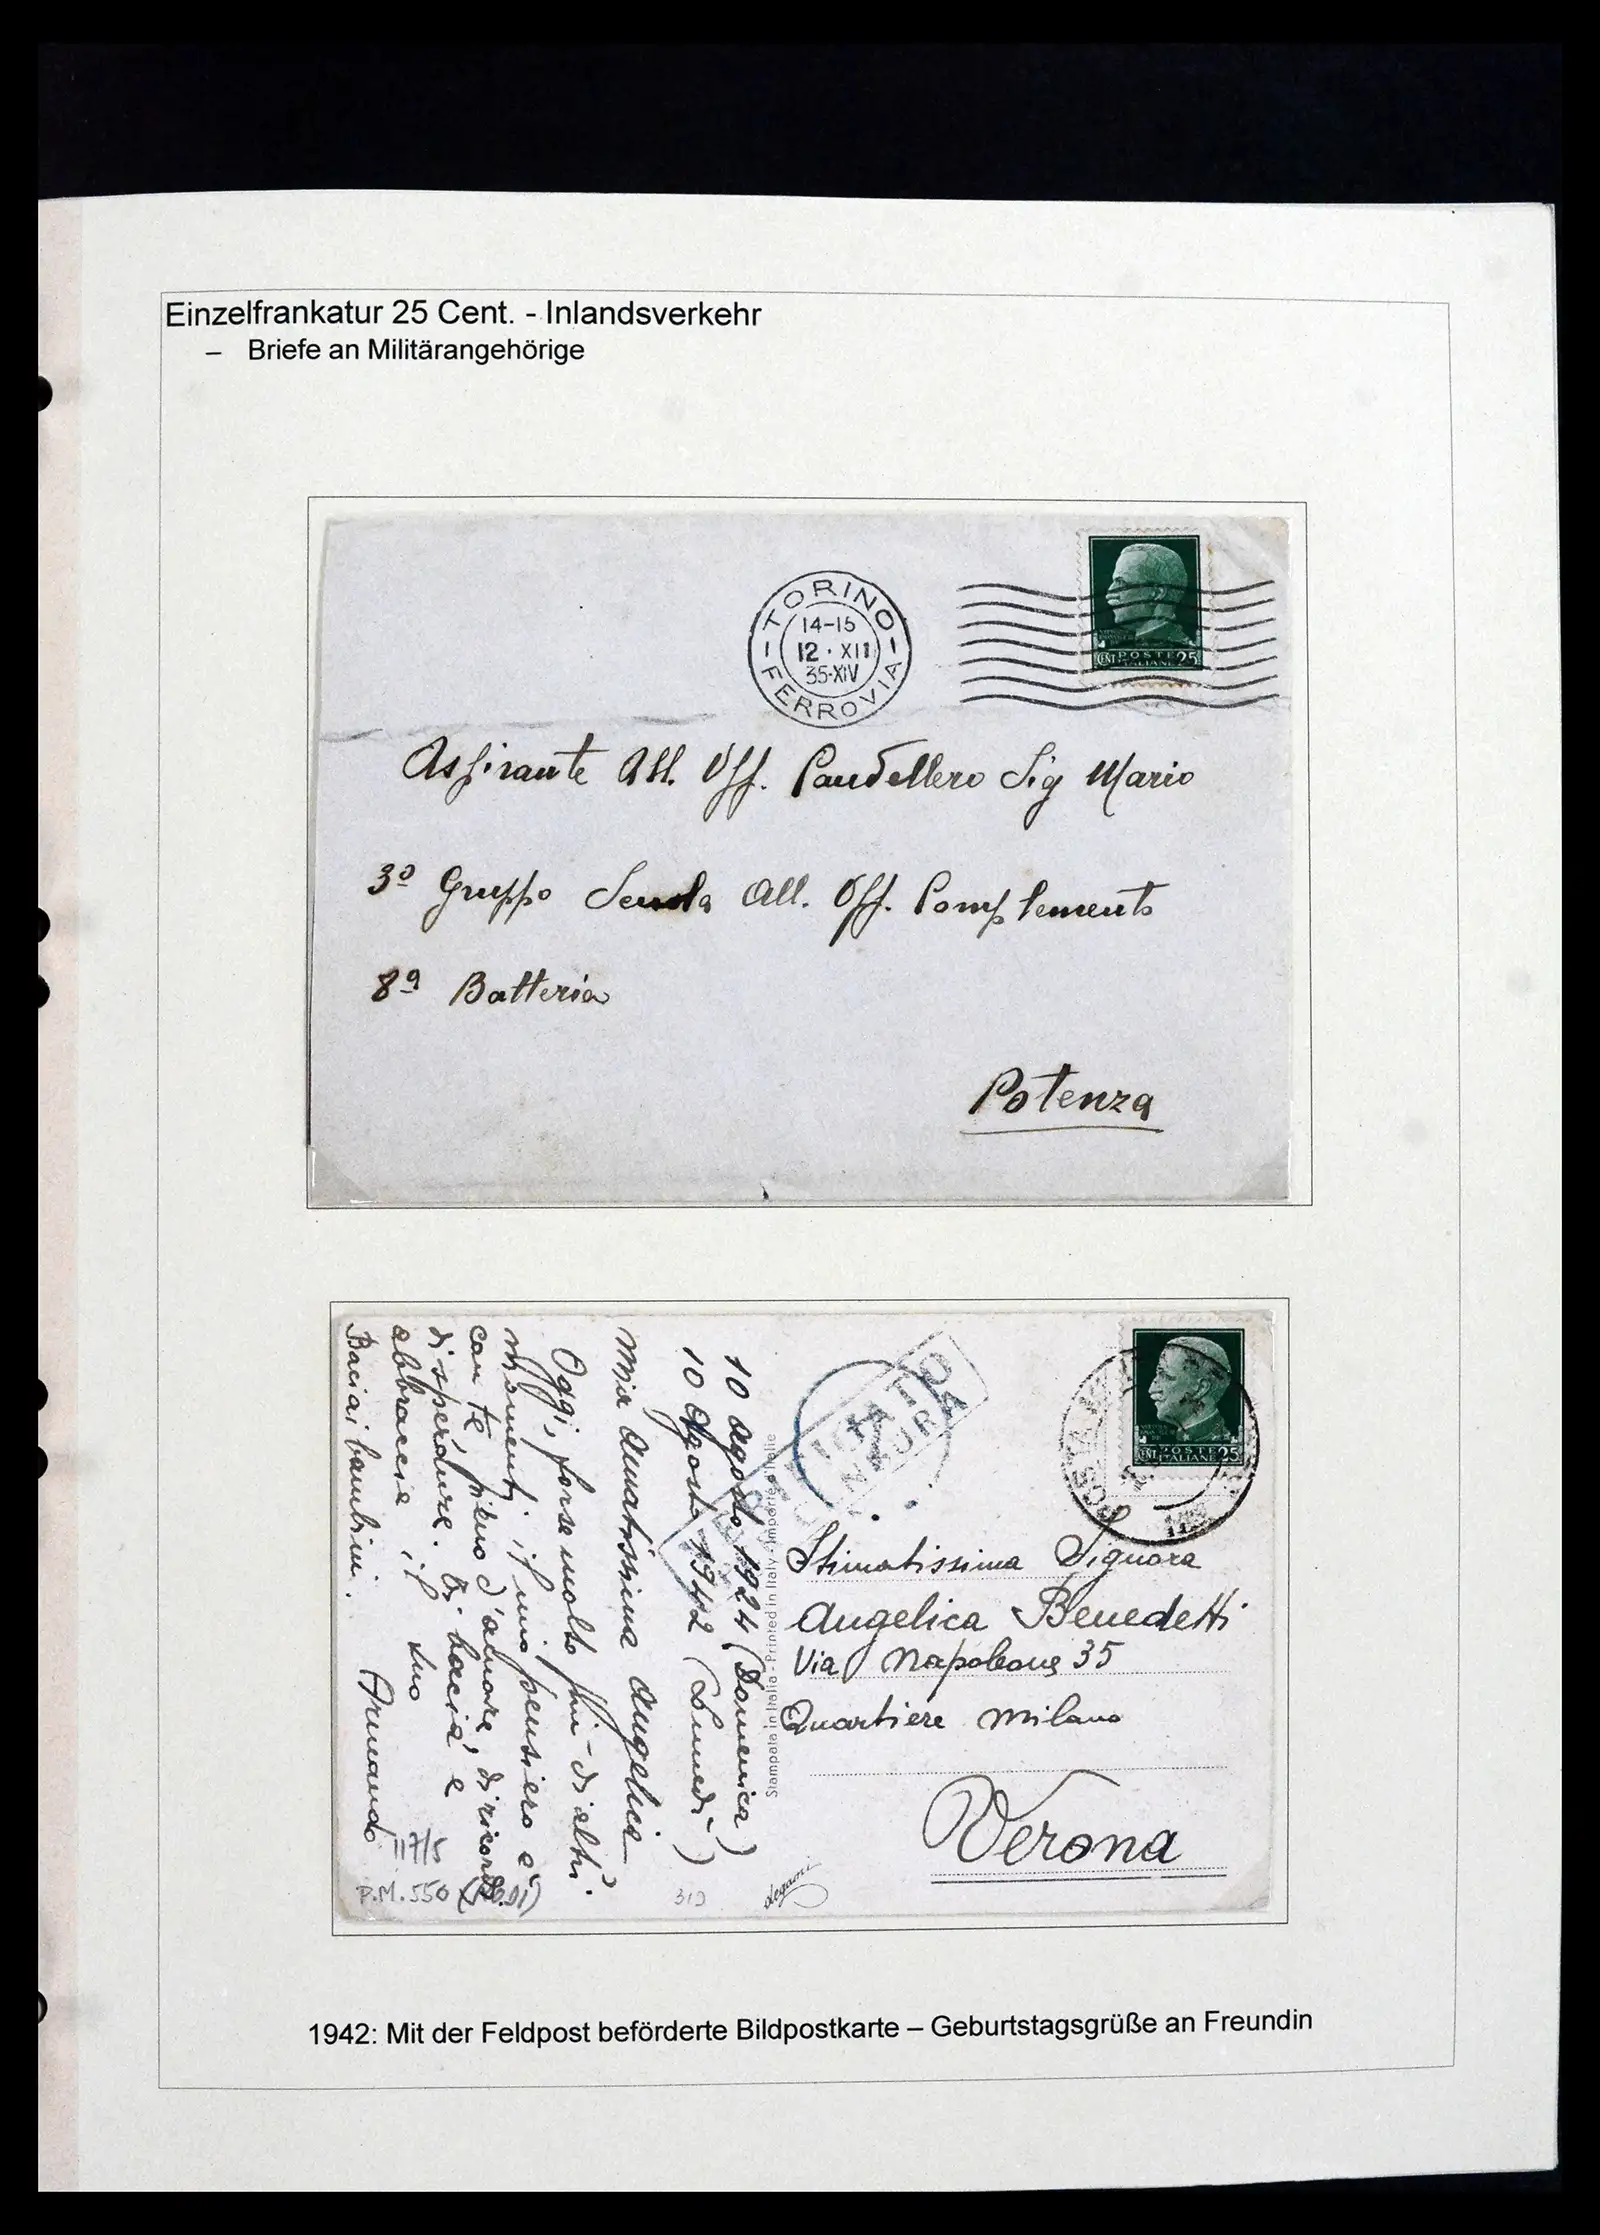 Einzelfrankatur 25 Cent. - Inlandsverkehr
– Briefe an Militärangehörige
TORINO
14-15
12 · XII
35·XIV
FERROVIA
CENT POSTE 25
ITALIANE
Aspirante All. Uff. Sig Mario
3º Gruppo Scuola All. Uff. Complemento
8ª Batteria
Potenza
10 Agosto 1924 (Domenica)
10 Agosto 1942 (Lunedì)
Mia Amatissima Angelica
Oggi, forse molto più di altri
momenti il mio pensiero è
con te, pieno d'amore, di ricordi
di sperdure. Ti bacia e
abbraccia il tuo
Armando
Bacia i bambini.
117/5
P.M. 550
319
Stampata in Italia - Printed in Italy
VERIFICATO
CENSURA
POSTA
CENT POSTE 25
ITALIANE
Stimatissima Signora
Angelica Benedetti
Via Napoleone 35
Quartiere Milano
Verona
1942: Mit der Feldpost beförderte Bildpostkarte – Geburtstagsgrüße an Freundin